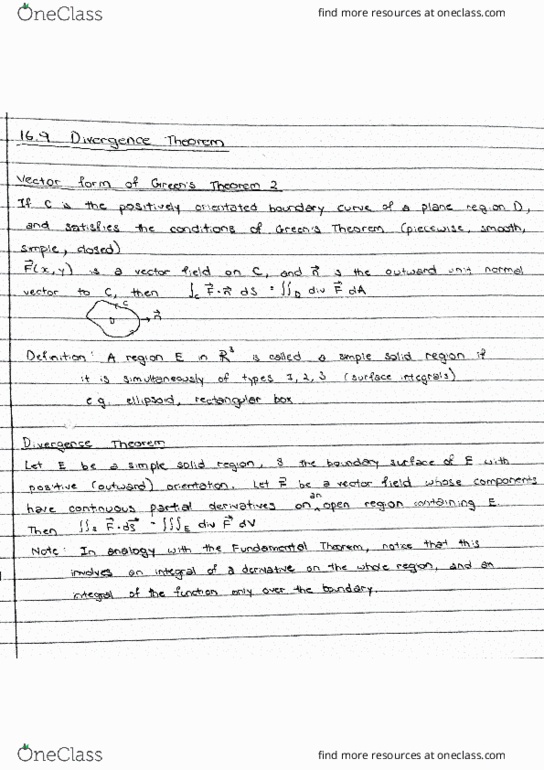 OneClass
find more resources at oneclass.com
16.9 Divergence Theorem
Vector form of Green's Theorem 2
If C is the positively orientated boundary curve of a plane region D,
and satisfies the conditions of Green's Theorem (piecewise, smooth,
simple, closed)
F⃗(x,y) is a vector field on C, and n⃗ is the outward unit normal
vector to C, then ∫_C F⃗·n⃗ ds = ∬_D div F⃗ dA
C
D
n⃗
Definition: A region E in R³ is called a simple solid region if
it is simultaneously of types 1, 2, 3 (surface integrals)
e.g. ellipsoid, rectangular box
Divergence Theorem
Let E be a simple solid region, S the boundary surface of E with
positive (outward) orientation. Let F⃗ be a vector field whose components
have continuous partial derivatives on an open region containing E.
Then ∬_S F⃗·dS⃗ = ∭_E div F⃗ dV
Note: In analogy with the Fundamental Theorem, notice that this
involves an integral of a derivative on the whole region, and an
integral of the function only over the boundary.
OneClass
find more resources at oneclass.com